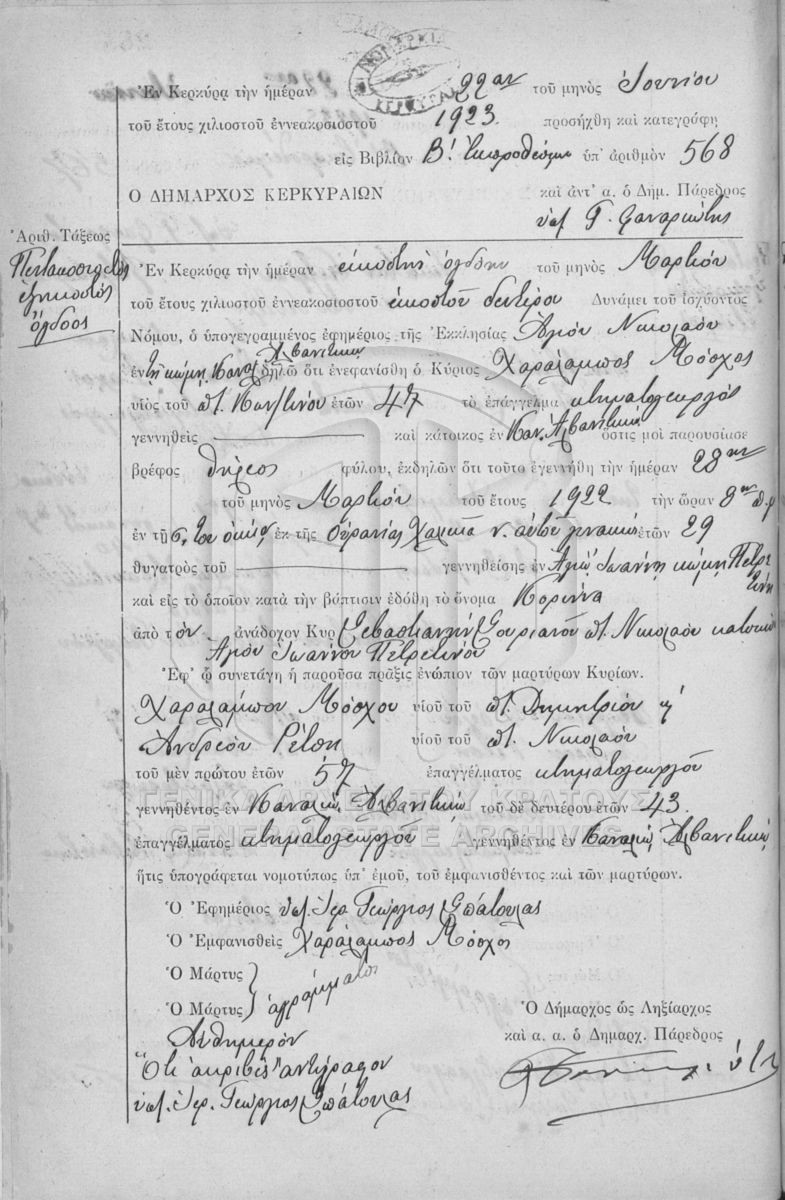 ΝΟΜΑΡΧΙΑ ΚΕΡΚΥΡΑΣ
Ἐν Κερκύρᾳ τὴν ἡμέραν 22αν τοῦ μηνὸς Ἰουνίου
τοῦ ἔτους χιλιοστοῦ ἐννεακοσιοστοῦ 1923 προσήχθη καὶ κατεγράφη
εἰς Βιβλίον Β! Ἐκπροθέσμων ὑπ' ἀριθμὸν 568
Ο ΔΗΜΑΡΧΟΣ ΚΕΡΚΥΡΑΙΩΝ καὶ ἀντ' α. ὁ Δημ. Πάρεδρος
Γ. Φαναριώτης
Ἀριθ. Τάξεως
Πεντακοσιοστὸς
ἑξηκοστὸς
ὄγδοος
Ἐν Κερκύρᾳ τὴν ἡμέραν εἰκοστὴν ὀγδόην τοῦ μηνὸς Μαρτίου
τοῦ ἔτους χιλιοστοῦ ἐννεακοσιοστοῦ εἰκοστοῦ δευτέρου Δυνάμει τοῦ ἰσχύοντος
Νόμου, ὁ ὑπογεγραμμένος ἐφημέριος τῆς Ἐκκλησίας Ἁγίου Νικολάου
ἐν τῇ κώμῃ Καναλ. Ἀλβανιτικῷ δηλῶ ὅτι ἐνεφανίσθη ὁ Κύριος Χαράλαμπος Μόσχος
υἱὸς τοῦ ποτ. Κων/τίνου ἐτῶν 47 τὸ ἐπάγγελμα κτηματογεωργὸς
γεννηθεὶς καὶ κάτοικος ἐν Καν. Ἀλβανιτικῷ ὅστις μοὶ παρουσίασε
βρέφος θήλεος φύλου, ἐκδηλῶν ὅτι τοῦτο ἐγεννήθη τὴν ἡμέραν 28ην
τοῦ μηνὸς Μαρτίου τοῦ ἔτους 1922 τὴν ὥραν 8ην π.μ
ἐν τῇ οἰκίᾳ ἐκ τῆς Οὐρανίας ν. αὐτοῦ γυναικὸς ἐτῶν 29
θυγατρὸς τοῦ γεννηθείσης ἐν Ἁγίῳ Ἰωάννῃ κώμῃ Πετρε
τίνη
καὶ εἰς τὸ ὁποῖον κατὰ τὴν βάπτισιν ἐδόθη τὸ ὄνομα Κορίννα
ἀπὸ τὸν ἀνάδοχον Κυρ Σεβαστιανὴν Σουριανοῦ ποτ. Νικολάου κάτοικον
Ἁγίου Ἰωάννου Πετρετίνου
Ἐφ' ᾧ συνετάγη ἡ παροῦσα πρᾶξις ἐνώπιον τῶν μαρτύρων Κυρίων.
Χαραλάμπου Μόσχου υἱοῦ τοῦ ποτ. Δημητρίου ἢ
Ἀνδρέου Ρέπση υἱοῦ τοῦ ποτ. Νικολάου
τοῦ μὲν πρώτου ἐτῶν 57 ἐπαγγέλματος κτηματογεωργοῦ
γεννηθέντος ἐν Καναλίῳ Ἀλβανιτικῷ τοῦ δὲ δευτέρου ἐτῶν 43.
ΓΕΝΙΚΑ ΑΡΧΕΙΑ ΤΟΥ ΚΡΑΤΟΥΣ
GENERAL STATE ARCHIVES
ἐπαγγέλματος κτηματογεωργοῦ γεννηθέντος ἐν Καναλίῳ Ἀλβανιτικῷ
ἥτις ὑπογράφεται νομοτύπως ὑπ' ἐμοῦ, τοῦ ἐμφανισθέντος καὶ τῶν μαρτύρων.
Ὁ Ἐφημέριος ὑπ. Ἱερ. Γεώργιος Σπάτουλας
Ὁ Ἐμφανισθεὶς Χαράλαμπος Μόσχος
Ὁ Μάρτυς
Ὁ Μάρτυς ἀγράμματοι
Αὐθημερὸν
Ὅτι ἀκριβὲς ἀντίγραφον
ὑπ. Ἱερ. Γεώργιος Σπάτουλας
Ὁ Δήμαρχος ὡς Ληξίαρχος
καὶ α. α. ὁ Δημαρχ. Πάρεδρος